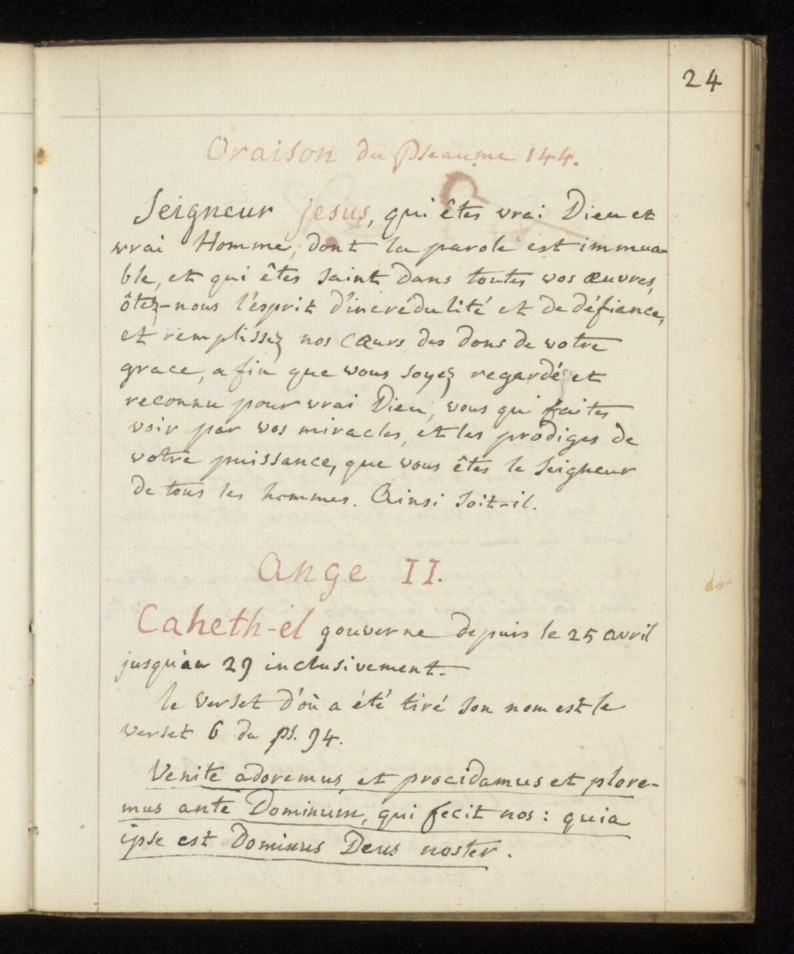 24
Oraison du Pseaume 144.
Seigneur Jesus, qui êtes vrai Dieu et
vrai Homme, dont la parole est immua-
ble, et qui êtes saint dans toutes vos œuvres,
ôtez-nous l'esprit d'incrédulité et de défiance,
et remplissez nos cœurs des dons de votre
grace, afin que vous soyez regardé et
reconnu pour vrai Dieu, vous qui faites
voir par vos miracles, et les prodiges de
votre puissance, que vous êtes le Seigneur
de tous les hommes. Ainsi soit-il.
Ange II.
Caheth-el gouverne depuis le 25 avril
jusqu'au 29 inclusivement.
le verset d'où a été tiré son nom est le
verset 6 du ps. 94.
Venite adoremus, et procidamus et plore-
mus ante Dominum, qui fecit nos: quia
ipse est Dominus Deus noster.